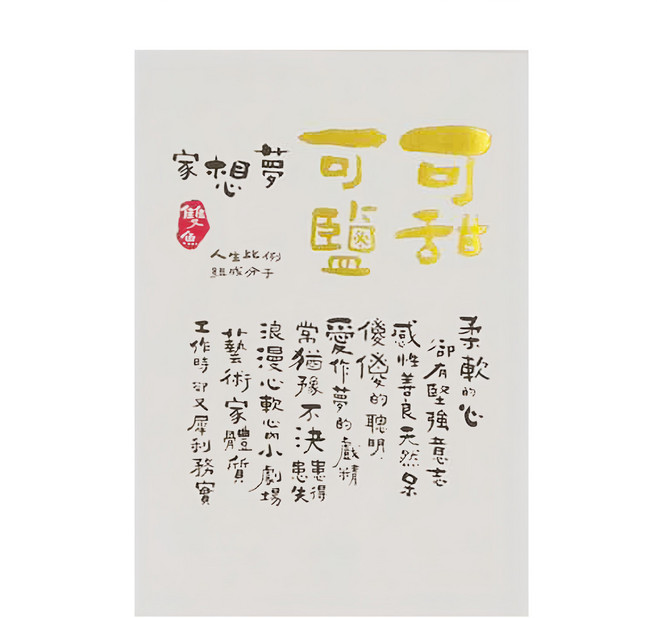 可甜
可鹽
夢想家
雙魚
人生比例
組成分子
柔軟的心
卻有堅強意志
感性善良天然呆
傻傻的聰明.
愛作夢的戲精
常猶豫不決患得患失
浪漫心軟心內小劇場
藝術家體質
工作時卻又犀利務實